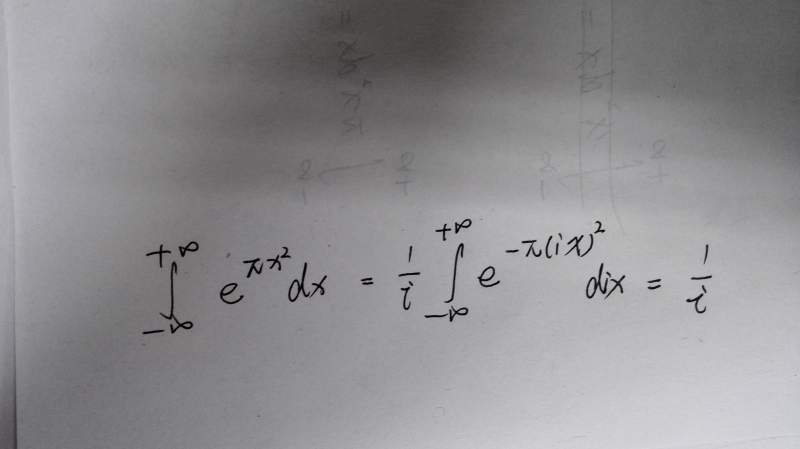 ∫_{-∞}^{+∞} e^{πx²} dx = \frac{1}{i} ∫_{-∞}^{+∞} e^{-π(ix)²} dix = \frac{1}{i}